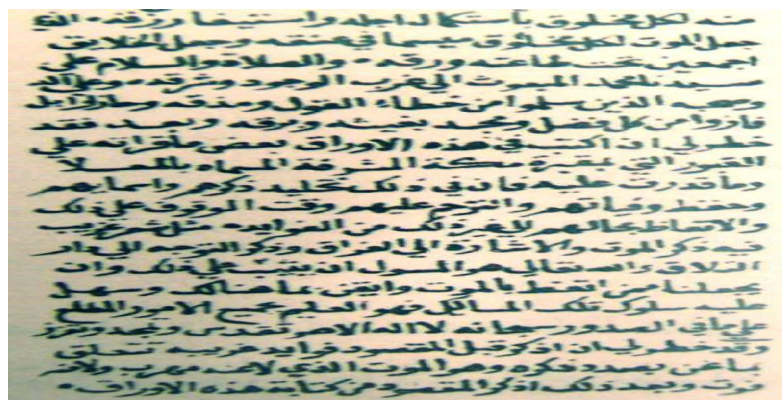 منه لكل مخلوق باستكمال اجله واستيفاء رزقه الذي
جعل الموت لكل مخلوق ميسما في عنقه وجعل الخلايق
اجمعين تحت طاعته ورقه والصلاة والسلام على
سيدنا محمد المبعوث الى غرب الوجود وشرقه وعلى اله
وصحبه الذين سلموا من خطاء القول ومذقه
فازوا من كل فضل ومجد بنفيسه وبعد فقد
خطر لي ان اكتب في هذه الاوراق بعض ما قراته على
القبور التي بمقبرة مكة المشرفة المسماه بالمعلا
وما قدرت عليه فان في ذلك تخليد ذكرهم واسمايهم
وحفظ وفياتهم والترحم عليهم وقت الوقوف على ذلك
والاتعاظ بحالهم لا غير ذلك من الفوايد مثل
فيه ذكر الموت والاشارة الى الفراق وذكر التوجه الى دار
التلاق والله تعالى هو المسول ان يثيب على ذلك وان
يجعلنا ممن اتعظ بالموت وايقن بما هنالك وسهل
عليه سلوك تلك المسالك فهو العليم بجميع الامور المطلع
على ما في الصدور سبحانه لا اله الا هو تقدس وتمجد وتعزز
وقد خطر لي ان اذكر قبل المقصود فوايد غريبه تتعلق
بما نحن بصدد ذكره وهو الموت الذي لا عنه مهرب ولا
فوت وبعد ذلك اذكر المقصود من كتابة هذه الاوراق